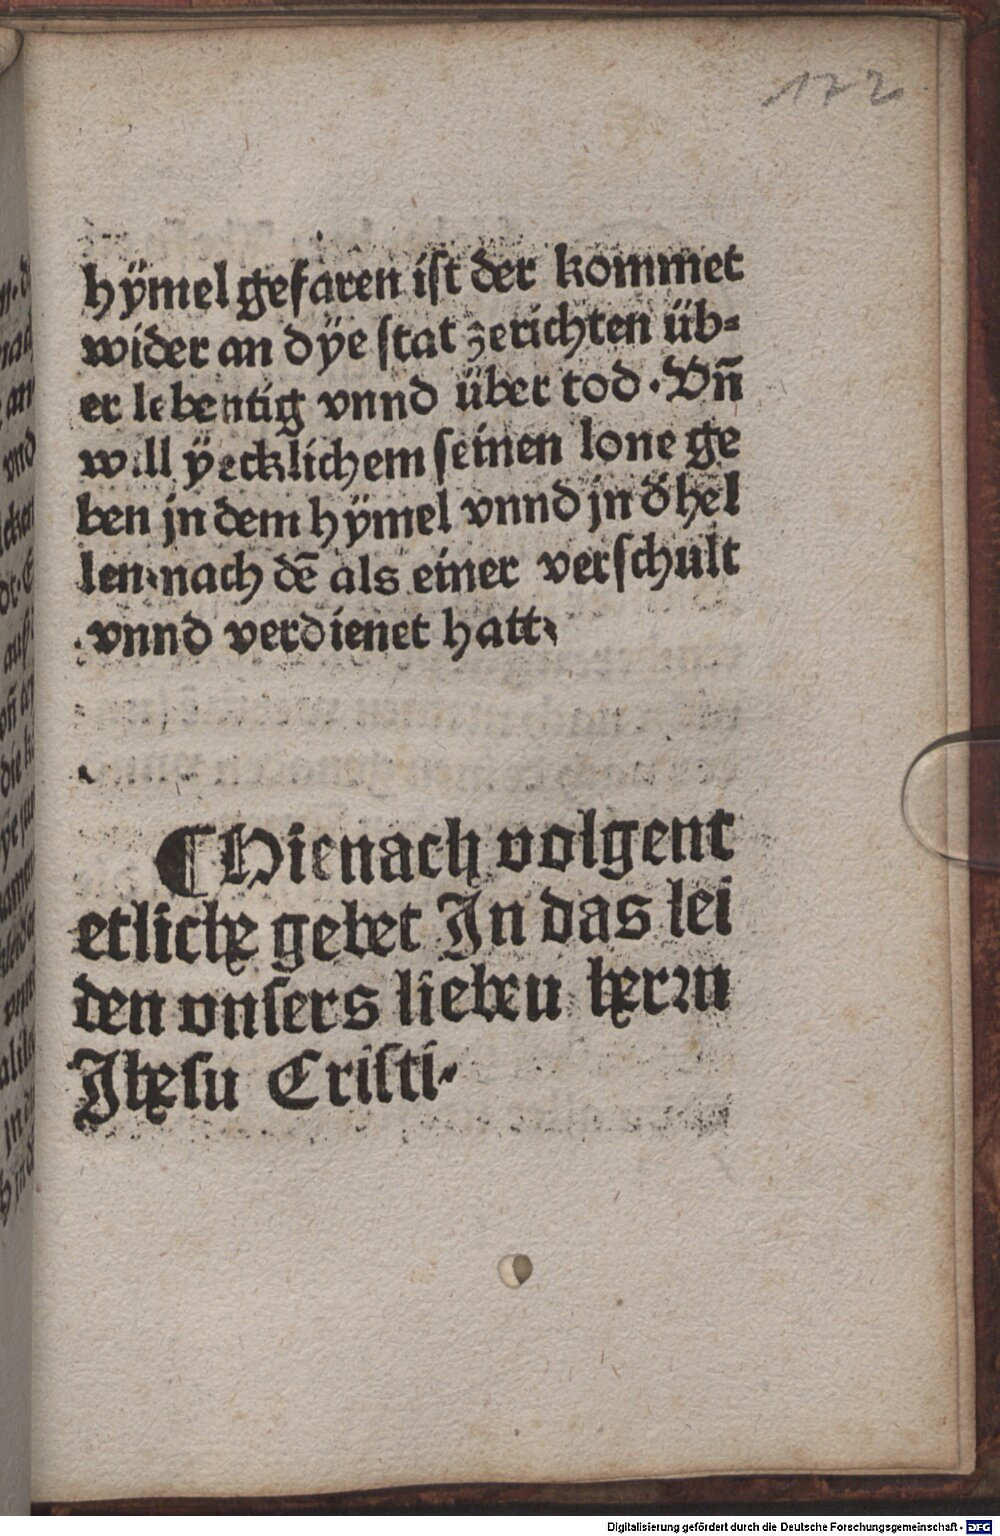 172
hÿmel gefaren ist der kommet
wider an dÿe stat zerichten üb=
er lebentig vnnd über tod. Vn̄
will ÿecklichem seinen lone ge
ben jn dem hÿmel vnnd jn d̓ hel
len. nach dē als einer verschult
vnnd verdienet hatt.
¶ Hienach volgent
etliche gebet In das lei
den vnsers lieben herꝛn
Jhesu Cristi.
Digitalisierung gefördert durch die Deutsche Forschungsgemeinschaft - DFG